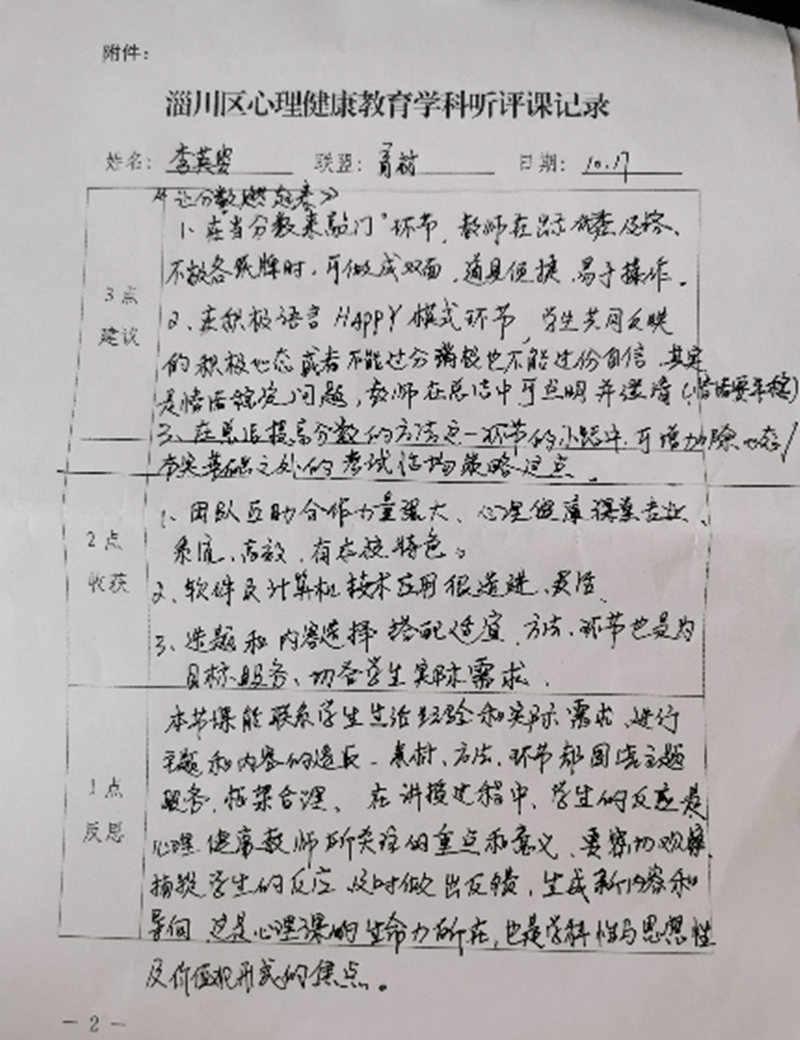 附件：
淄川区心理健康教育学科听评课记录
姓名： 李英 联盟： 青树 日期： 10.17
《让分数燃起来》
3点
建议
1、在"当分数来敲门"环节，教师在出示
不敢各纸牌时，可做成双面，道具便捷、易于操作。
2、在积极语言HAPPY模式环节，学生共同反映
的积极心态或者不能过分消极也不能过份自信，其实
是情绪稳定问题，教师在总结中可点明并澄清（情绪要平稳）
3、在总结提高分数的方法这一环节的小结中，可增加除心态/
夯实基础之外的考试临场策略这点。
2点
收获
1、团队互助合作力量强大、心理健康课堂专业、
系统、高效，有本校特色。
2、软件及计算机技术应用很先进、灵活
3、选题和内容选择搭配适宜，方法、环节也是为
目标服务、切合学生实际需求。
1点
反思
本节课能联系学生生活经验和实际需求，进行
主题和内容的选取、素材、方法、环节都围绕主题
服务，框架合理、在讲授过程中、学生的反应是
心理健康教师所关注的重点和意义，要密切观察
捕捉学生的反应及时做出反馈，生成新内容和
导向，这是心理课的生命力所在，也是学科性与思想性
及价值观形式的焦点。
- 2 -